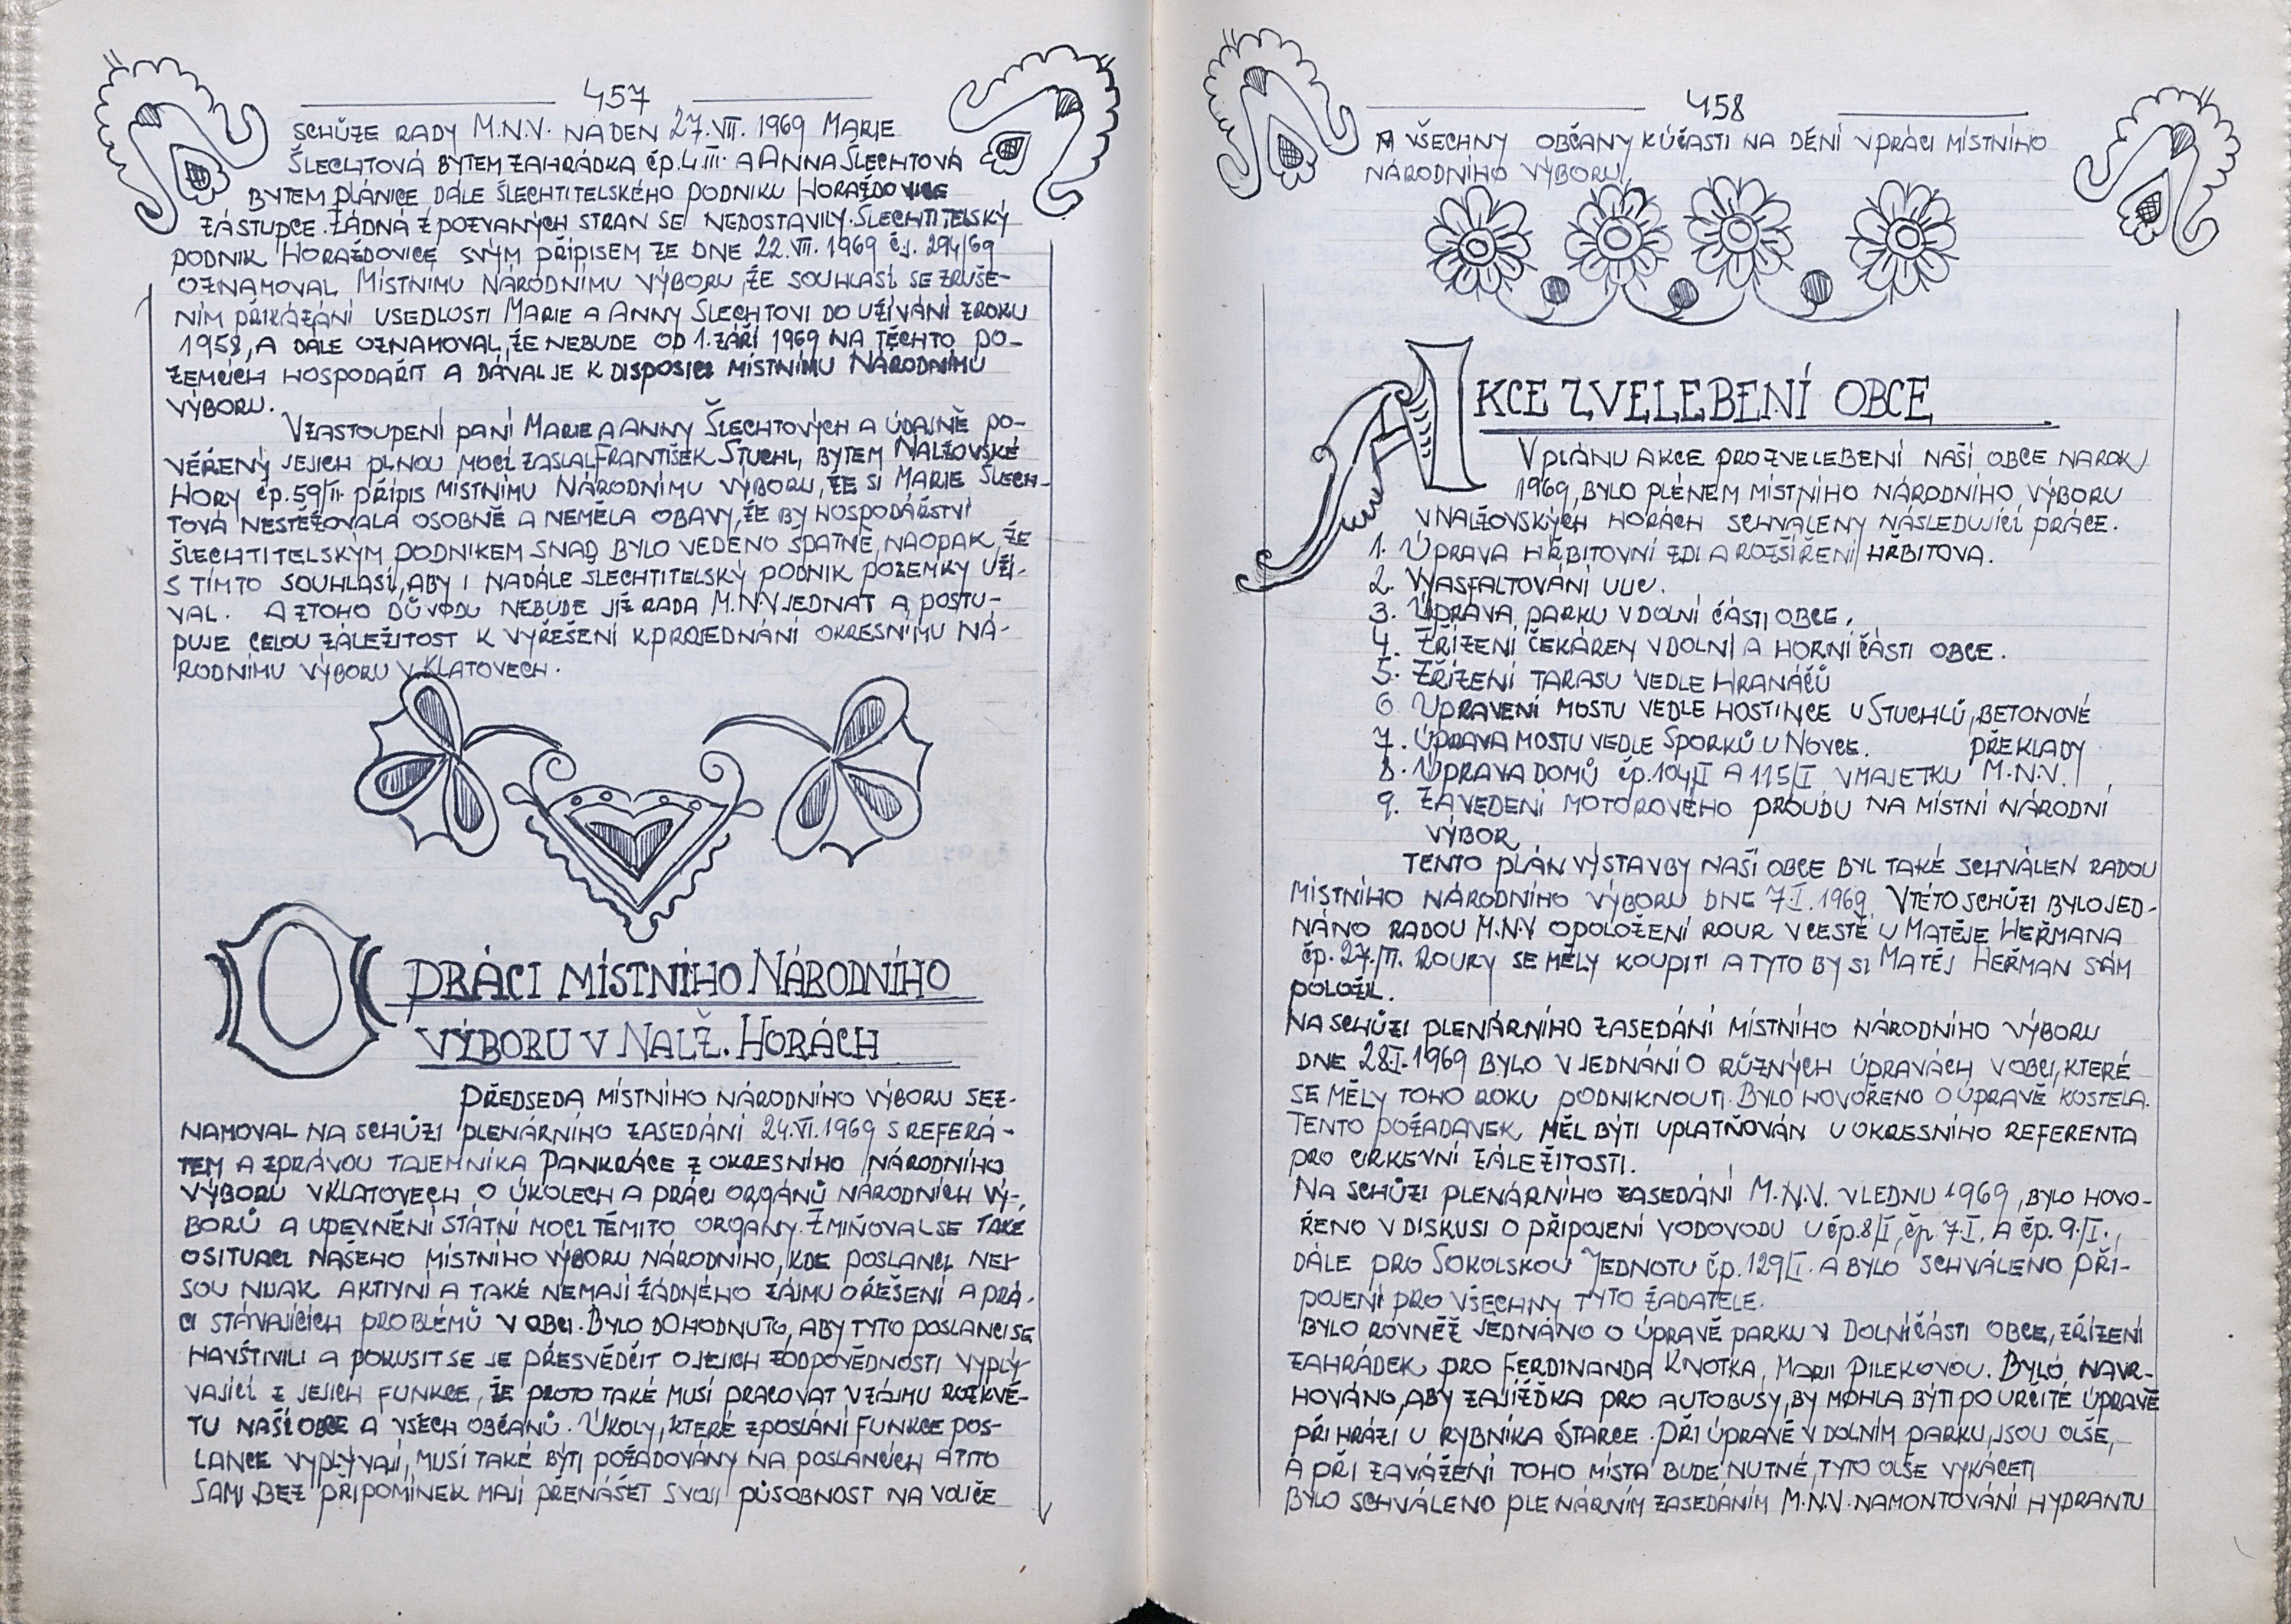 457
SCHŮZE RADY M.N.V. NA DEN 27.VII. 1969 MARIE
ŠLECHTOVÁ BYTEM ZAHRÁDKA ČP.4.III. A ANNA ŠLECHTOVÁ
BYTEM PLÁNICE DÁLE ŠLECHTITELSKÉHO PODNIKU HORAŽDOVICE
ZÁSTUPCE. ŽÁDNÁ Z POZVANÝCH STRAN SE NEDOSTAVILY. ŠLECHTITELSKÝ
PODNIK HORAŽDOVICE SVÝM PŘÍPISEM ZE DNE 22.VII. 1969 Č.J. 294/69
OZNAMOVAL MÍSTNÍMU NÁRODNÍMU VÝBORU, ŽE SOUHLASÍ SE ZRUŠE-
NÍM PŘIKÁZÁNÍ USEDLOSTI MARIE A ANNY ŠLECHTOVI DO UŽÍVÁNÍ Z ROKU
1958, A DÁLE OZNAMOVAL, ŽE NEBUDE OD 1. ZÁŘÍ 1969 NA TĚCHTO PO-
ZEMCÍCH HOSPODAŘIT A DÁVAL JE K DISPOSICI MÍSTNÍMU NÁRODNÍMU
VÝBORU.
V ZASTOUPENÍ PANÍ MARIE A ANNY ŠLECHTOVÝCH A ÚDAJNĚ PO-
VĚŘENÝ JEJICH PLNOU MOCÍ ZASLAL FRANTIŠEK STUCHL, BYTEM NALŽOVSKÉ
HORY ČP.59/II. PŘÍPIS MÍSTNÍMU NÁRODNÍMU VÝBORU, ŽE SI MARIE ŠLECH-
TOVÁ NESTĚŽOVALA OSOBNĚ A NEMĚLA OBAVY, ŽE BY HOSPODÁŘSTVÍ
ŠLECHTITELSKÝM PODNIKEM SNAD BYLO VEDENO ŠPATNĚ, NAOPAK, ŽE
S TÍMTO SOUHLASÍ, ABY I NADÁLE SLECHTITELSKÝ PODNIK POZEMKY UŽÍ-
VAL. A Z TOHO DŮVODU NEBUDE JIŽ RADA M.N.V JEDNAT A POSTU-
PUJE CELOU ZÁLEŽITOST K VYŘEŠENÍ K PROJEDNÁNÍ OKRESNÍMU NÁ-
RODNÍMU VÝBORU V KLATOVECH.
O PRÁCI MÍSTNÍHO NÁRODNÍHO
VÝBORU V NALŽ. HORÁCH
PŘEDSEDA MÍSTNÍHO NÁRODNÍHO VÝBORU SEZ-
NAMOVAL NA SCHŮZI PLENÁRNÍHO ZASEDÁNÍ 24.VI.1969 S REFERÁ-
TEM A ZPRÁVOU TAJEMNÍKA PANKRÁCE Z OKRESNÍHO NÁRODNÍHO
VÝBORU V KLATOVECH O ÚKOLECH A PRÁCI ORGÁNŮ NÁRODNÍCH VÝ-
BORŮ A UPEVNĚNÍ STÁTNÍ MOCI TĚMITO ORGANY. ZMIŇOVAL SE TAKÉ
O SITUACI NAŠEHO MÍSTNÍHO VÝBORU NÁRODNÍHO, KDE POSLANCI NEJ-
SOU NIJAK AKTIVNÍ A TAKÉ NEMAJÍ ŽÁDNÉHO ZÁJMU O ŘEŠENÍ A PRÁ-
CI STÁVAJÍCÍCH PROBLÉMŮ V OBCI. BYLO DOHODNUTO, ABY TYTO POSLANCI SE
NAVŠTIVILI A POKUSIT SE JE PŘESVĚDČIT O JEJICH ZODPOVĚDNOSTI VYPLÝ-
VAJÍCÍ Z JEJICH FUNKCE, ŽE PROTO TAKÉ MUSÍ PRACOVAT V ZÁJMU ROZKVĚ-
TU NAŠÍ OBCE A VŠECH OBČANŮ. ÚKOLY, KTERÉ Z POSLÁNÍ FUNKCE POS-
LANCE VYPLÝVAJÍ, MUSÍ TAKÉ BÝTI POŽADOVÁNY NA POSLANCÍCH A TITO
SAMI BEZ PŘIPOMÍNEK MAJÍ PŘENÁŠET SVOJI PŮSOBNOST NA VOLIČE
458
A VŠECHNY OBČANY K ÚČASTI NA DĚNÍ V PRÁCI MÍSTNÍHO
NÁRODNÍHO VÝBORU.
AKCE ZVELEBENÍ OBCE
V PLÁNU AKCE PRO ZVELEBENÍ NAŠÍ OBCE NA ROK
1969, BYLO PLÉNEM MÍSTNÍHO NÁRODNÍHO VÝBORU
V NALŽOVSKÝCH HORÁCH SCHVÁLENY NÁSLEDUJÍCÍ PRÁCE.
1. ÚPRAVA HŘBITOVNÍ ZDI A ROZŠÍŘENÍ HŘBITOVA.
2. VYASFALTOVÁNÍ ULIC.
3. ÚPRAVA PARKU V DOLNÍ ČÁSTI OBCE.
4. ZŘÍZENÍ ČEKÁREN V DOLNÍ A HORNÍ ČÁSTI OBCE.
5. ZŘÍZENÍ TARASU VEDLE HRANÁČŮ
6. UPRAVENÍ MOSTU VEDLE HOSTINCE U STUCHLŮ, BETONOVÉ
7. ÚPRAVA MOSTU VEDLE SPORKŮ U NOVCE. PŘEKLADY
8. ÚPRAVA DOMŮ ČP.104/I A 115/I V MAJETKU M.N.V.
9. ZAVEDENÍ MOTOROVÉHO PROUDU NA MÍSTNÍ NÁRODNÍ
VÝBOR
TENTO PLÁN VÝSTAVBY NAŠÍ OBCE BYL TAKÉ SCHVÁLEN RADOU
MÍSTNÍHO NÁRODNÍHO VÝBORU DNE 7.I.1969. V TÉTO SCHŮZI BYLO JED-
NÁNO RADOU M.N.V O POLOŽENÍ ROUR V CESTĚ U MATĚJE HEŘMANA
ČP.27./II. ROURY SE MĚLY KOUPITI A TYTO BY SI MATĚJ HEŘMAN SÁM
POLOŽIL.
NA SCHŮZI PLENÁRNÍHO ZASEDÁNÍ MÍSTNÍHO NÁRODNÍHO VÝBORU
DNE 28.I.1969 BYLO V JEDNÁNÍ O RŮZNÝCH ÚPRAVÁCH V OBCI, KTERÉ
SE MĚLY TOHO ROKU PODNIKNOUTI. BYLO HOVOŘENO O ÚPRAVĚ KOSTELA.
TENTO POŽADAVEK MĚL BÝTI UPLATŇOVÁN U OKRESNÍHO REFERENTA
PRO CÍRKEVNÍ ZÁLEŽITOSTI.
NA SCHŮZI PLENÁRNÍHO ZASEDÁNÍ M.N.V. V LEDNU 1969, BYLO HOVO-
ŘENO V DISKUSI O PŘIPOJENÍ VODOVODU U ČP.8/I, ČP. 7.I. A ČP. 9./I.,
DÁLE PRO SOKOLSKOU JEDNOTU ČP.129/I. A BYLO SCHVÁLENO PŘI-
POJENÍ PRO VŠECHNY TYTO ŽADATELE.
BYLO ROVNĚŽ JEDNÁNO O ÚPRAVĚ PARKU V DOLNÍ ČÁSTI OBCE, ZŘÍZENÍ
ZAHRÁDEK PRO FERDINANDA KNOTKA, MARII PILEKOVOU. BYLO NAVR-
HOVÁNO, ABY ZAJÍŽĎKA PRO AUTOBUSY, BY MOHLA BÝTI PO URČITÉ ÚPRAVĚ
PŘI HRÁZI U RYBNÍKA STARCE. PŘI ÚPRAVĚ V DOLNÍM PARKU, JSOU OLŠE,
A PŘI ZAVÁŽENÍ TOHO MÍSTA BUDE NUTNÉ, TYTO OLŠE VYKÁCETI
BYLO SCHVÁLENO PLENÁRNÍM ZASEDÁNÍM M.N.V. NAMONTOVÁNÍ HYDRANTU